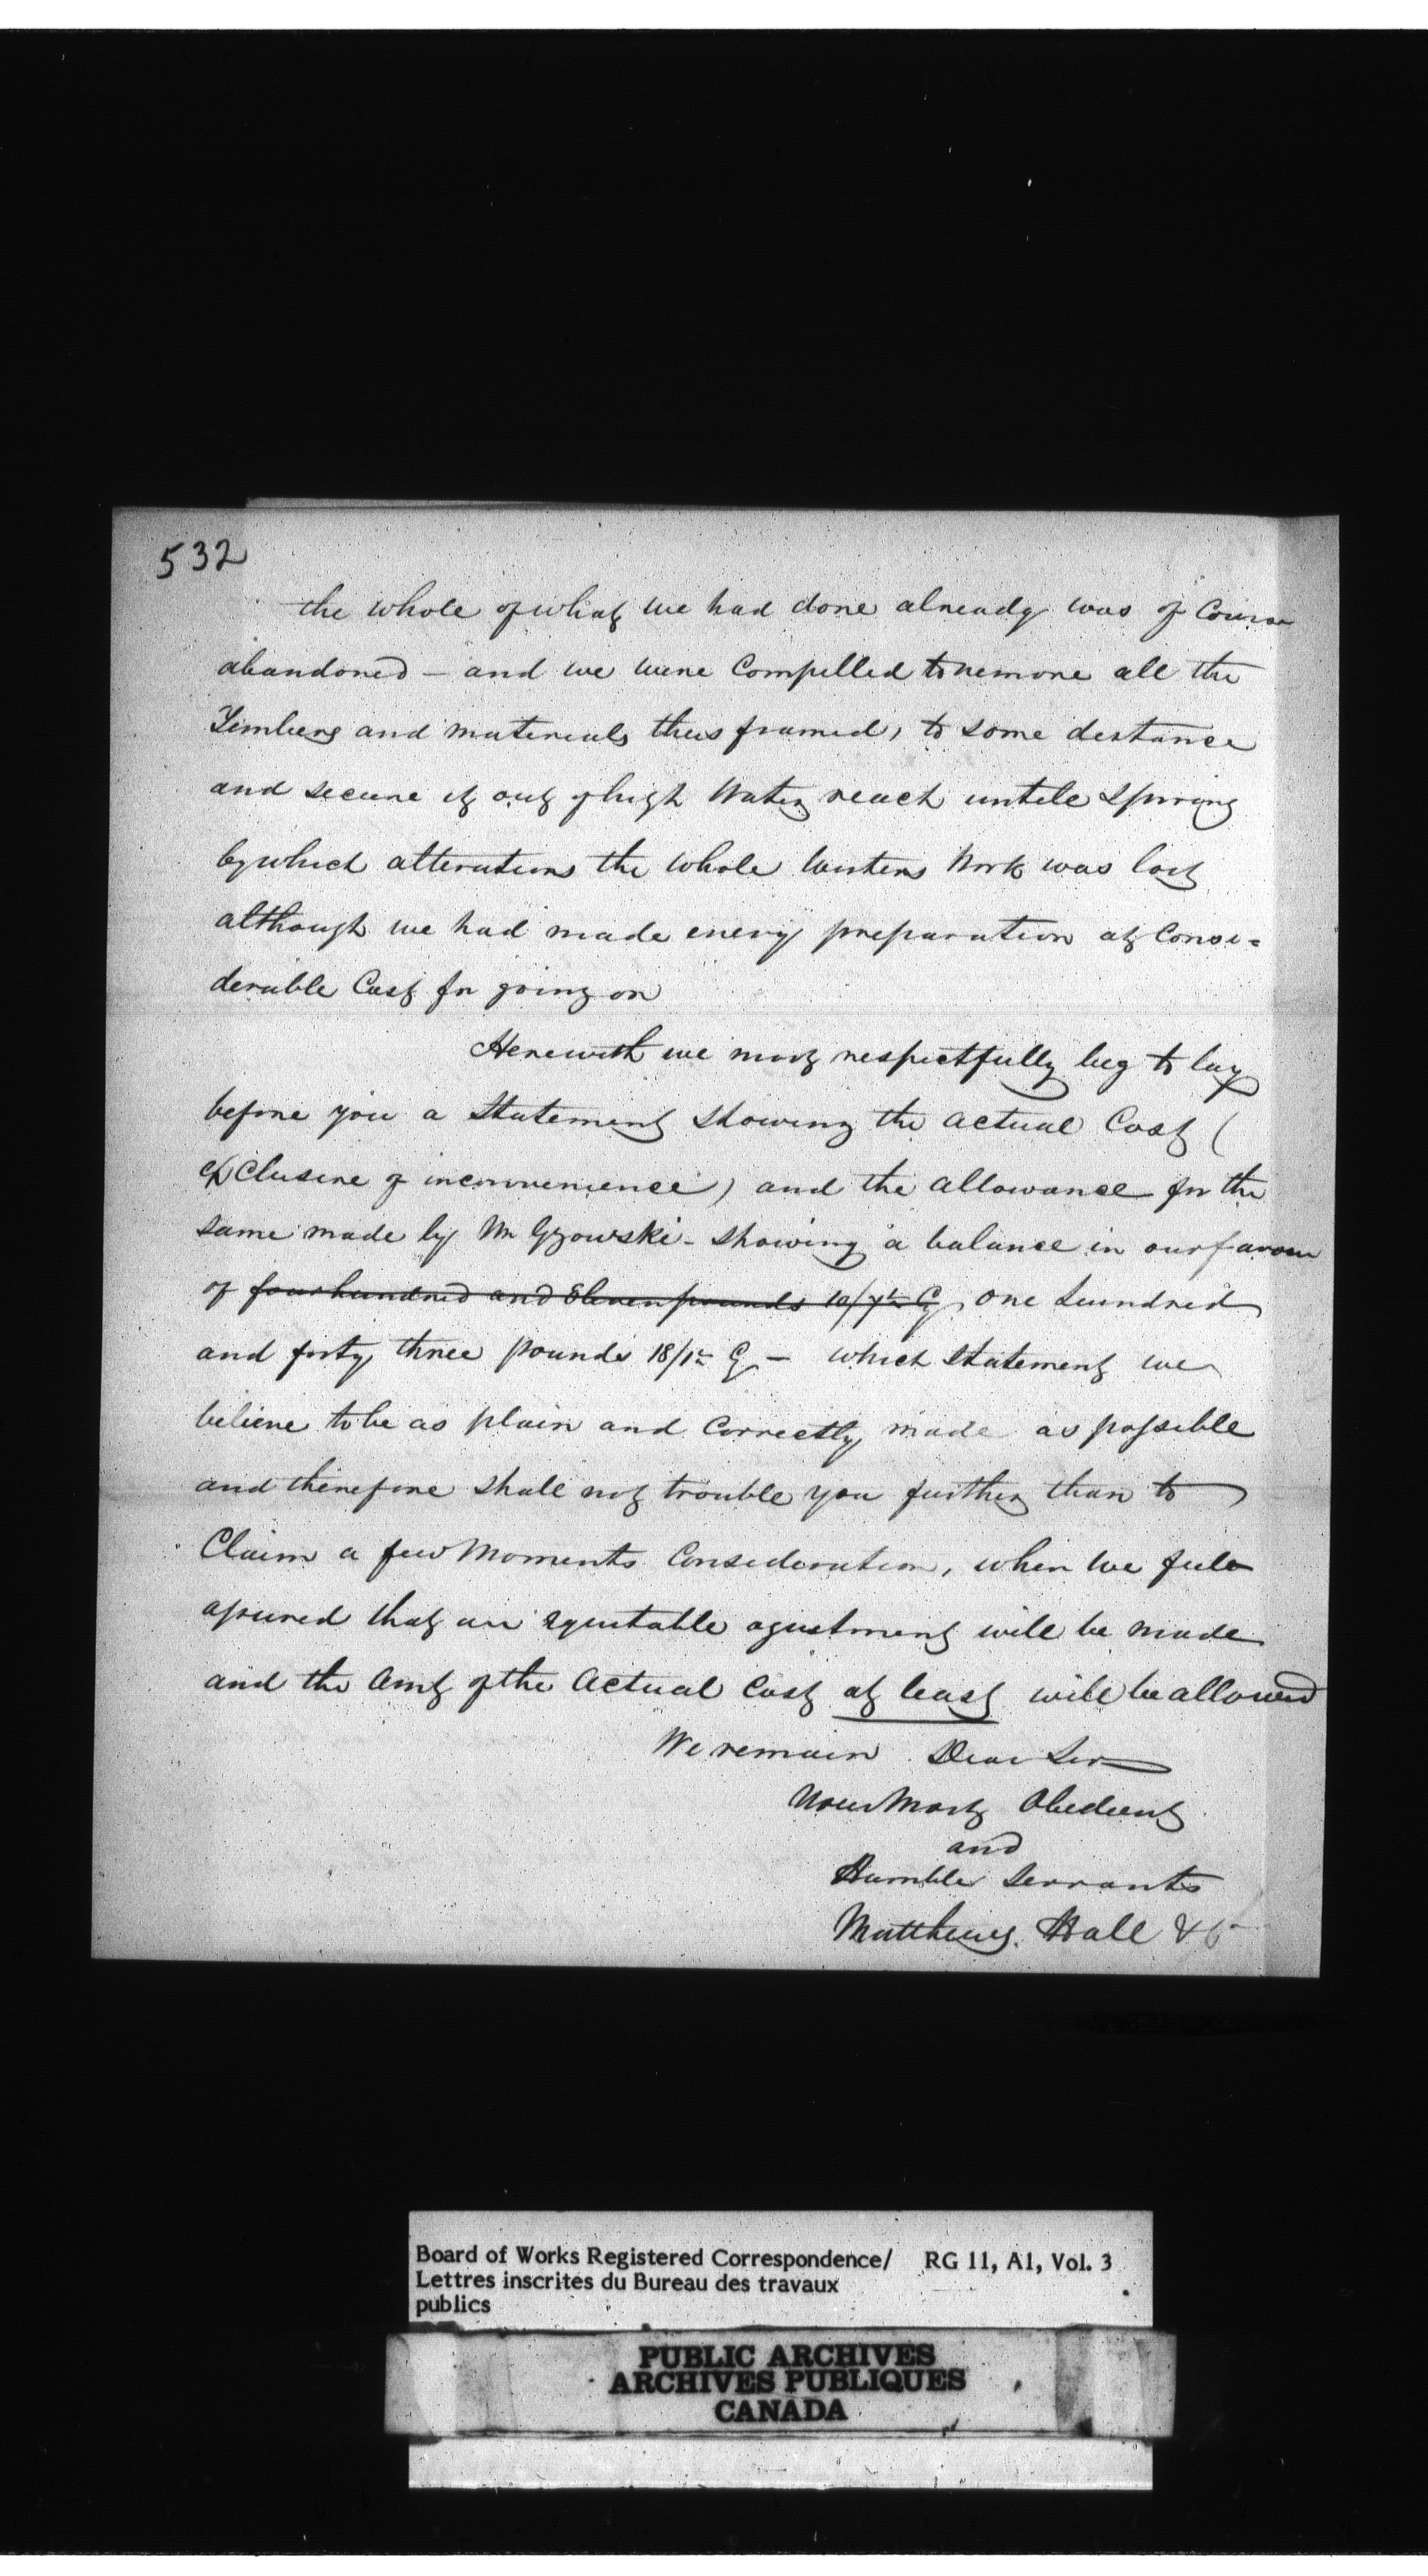 532
the whole of what we had done already was of Course
abandoned – and we were Compelled to remove all the
Timbers and materials thus framed, to some distance
and secure it out of high Water reach untile Spring
by which alterations the whole winters Work was lost
although we had made every preparation at Consi=
derable Cost for going on
Herewith we most respectfully beg to lay
before you a Statement showing the actual Cost (
exclusive of inconvenience) and the allowance for the
same made by Mr Gzowski – showing a balance in our favour
of four hundred and Eleven pounds 10/7 Cy, one hundred
and forty three pounds 18/1 Cy – which Statement we
believe to be as plain and Correctly made as possible
and therefore shall not trouble you further than to
Claim a few Moments Consideration, when we feele
assured that an equitable agustment will be made
and the Amt of the Actual Cost at least will be allowed
We remain Dear Sir
Your Most Obedient
and
Humble Servants
Matthews, Hall & Co
Board of Works Registered Correspondence/ RG 11, A1, Vol. 3
Lettres inscrites du Bureau des travaux
publics
PUBLIC ARCHIVES
ARCHIVES PUBLIQUES
CANADA